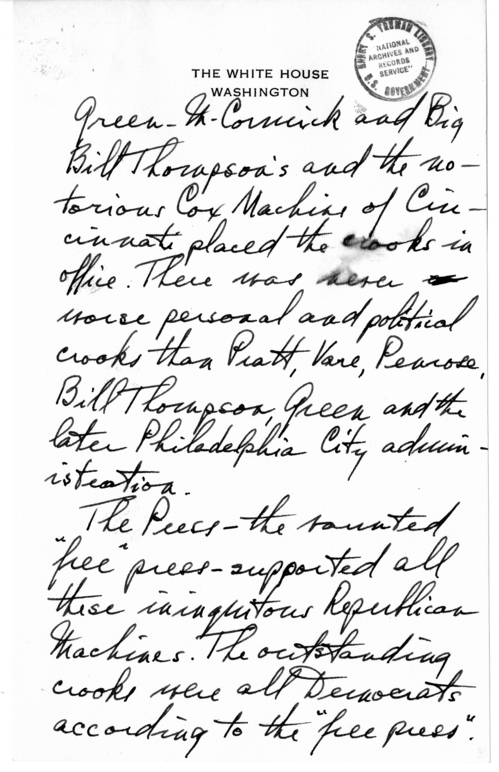 HARRY S. TRUMAN LIBRARY
"NATIONAL
ARCHIVES AND
RECORDS
SERVICE"
U.S. GOVERNMENT
THE WHITE HOUSE
WASHINGTON
Green-McCormick and Big
Bill Thompson's and the no-
torious Cox Machine of Cin-
cinnati placed the crooks in
office. There was never
worse personal and political
crooks than Pratt, Vare, Penrose,
Bill Thompson, Green and the
later Philadelphia City admin-
istration.
The Press-the vaunted
"free" press-supported all
these ininquitous Republican
Machines. The outstanding
crooks were all Democrats
according to the "free press".